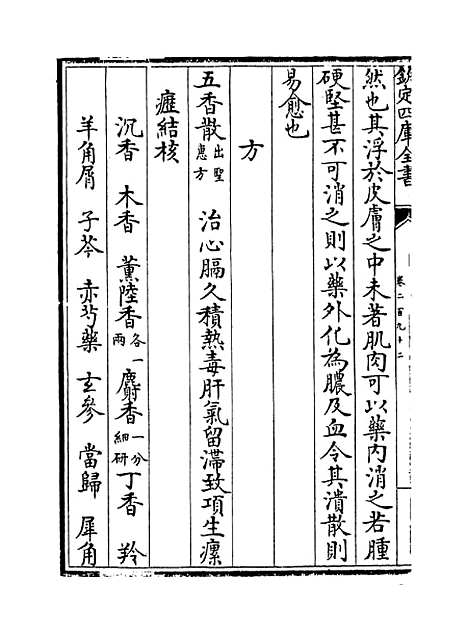 欽定四庫全書
卷二百九十二
然也其浮於皮膚之中未著肌肉可以藥内消之若腫
硬堅甚不可消之則以藥外化為膿及血令其潰散則
易愈也
方
五香散出聖惠方 治心膈久積熱毒肝氣留滯致項生瘰
癧結核
沉香 木香 薰陸香各一兩 麝香一分細研 丁香 羚
羊角屑 子芩 赤芍藥 玄參 當歸 犀角